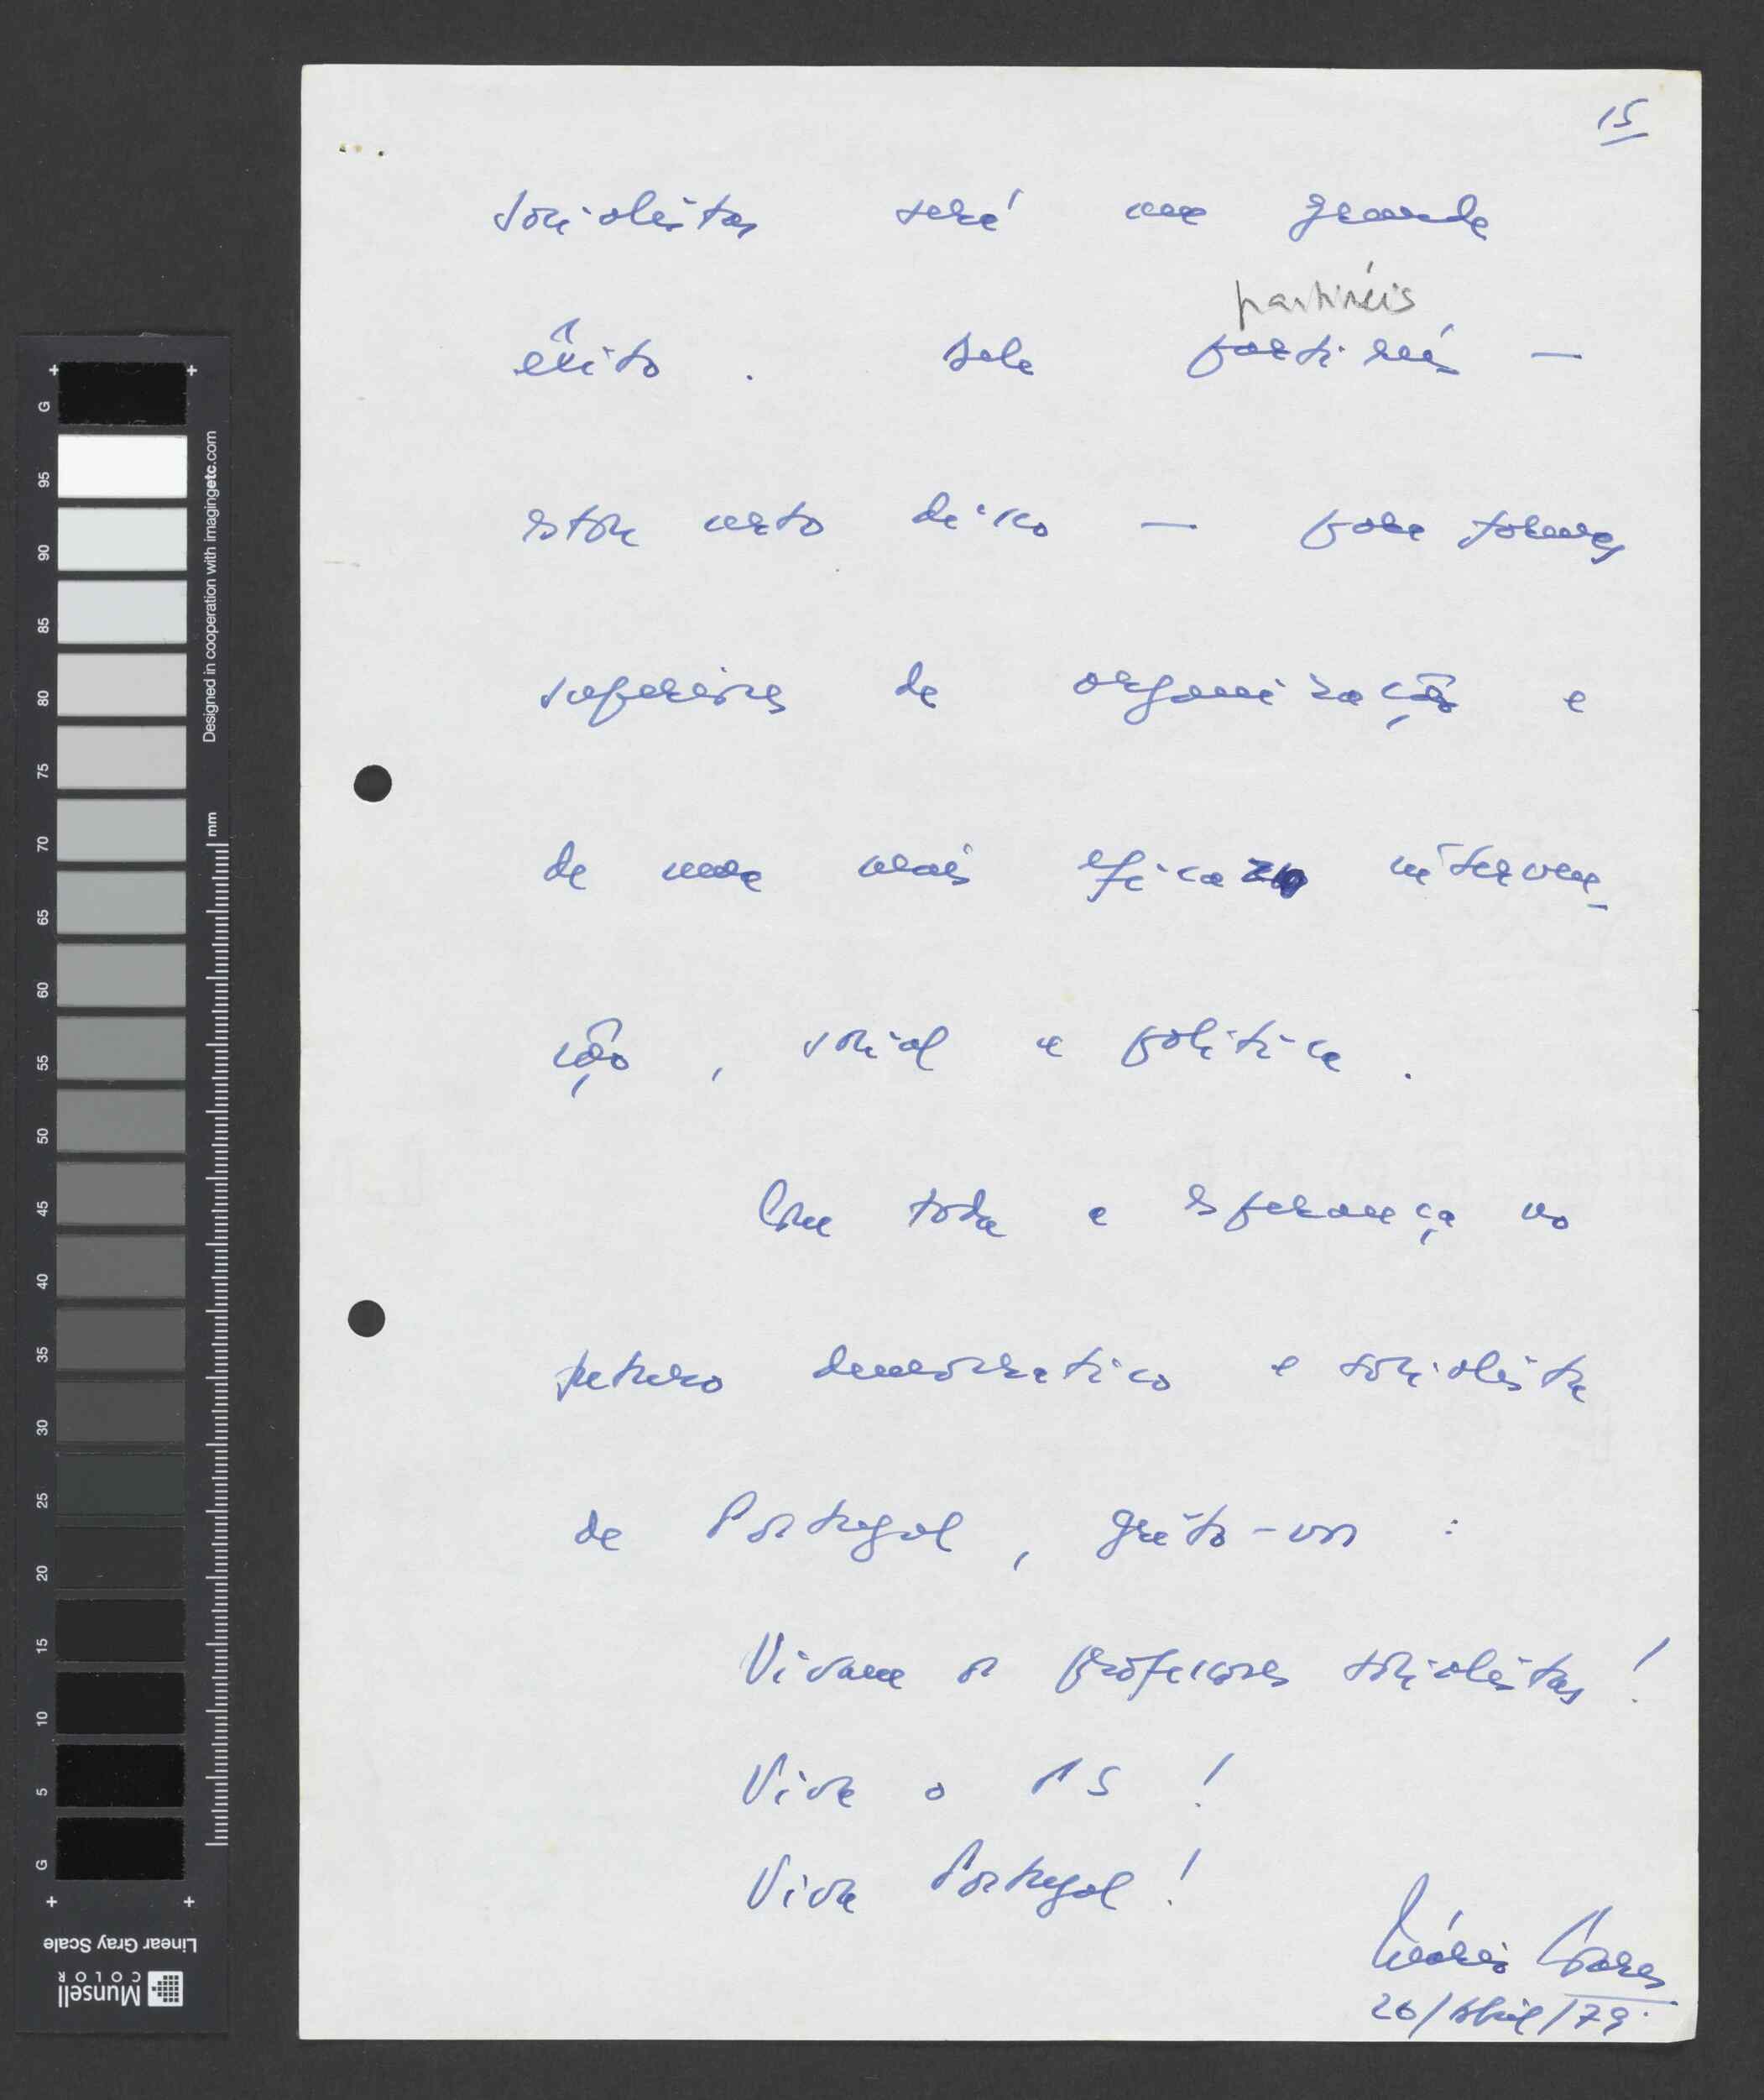 15
socialistas será um grande
partireis
êxito. Dele partireis —
estou certo disso — para formas
superiores de organização e
de uma mais eficaz interven-
ção, social e política.
Com toda a esperança no
futuro democratico e socialista
de Portugal, grito-vos:
Vivam os professores socialistas!
Viva o PS!
Viva Portugal!
Mário Soares
26/Abril/79.
G
95
90
85
80
75
70
65
60
55
50
45
40
35
30
25
20
15
10
5
G
Designed in cooperation with imagingetc.com
mm
Linear Gray Scale
Munsell
COLOR